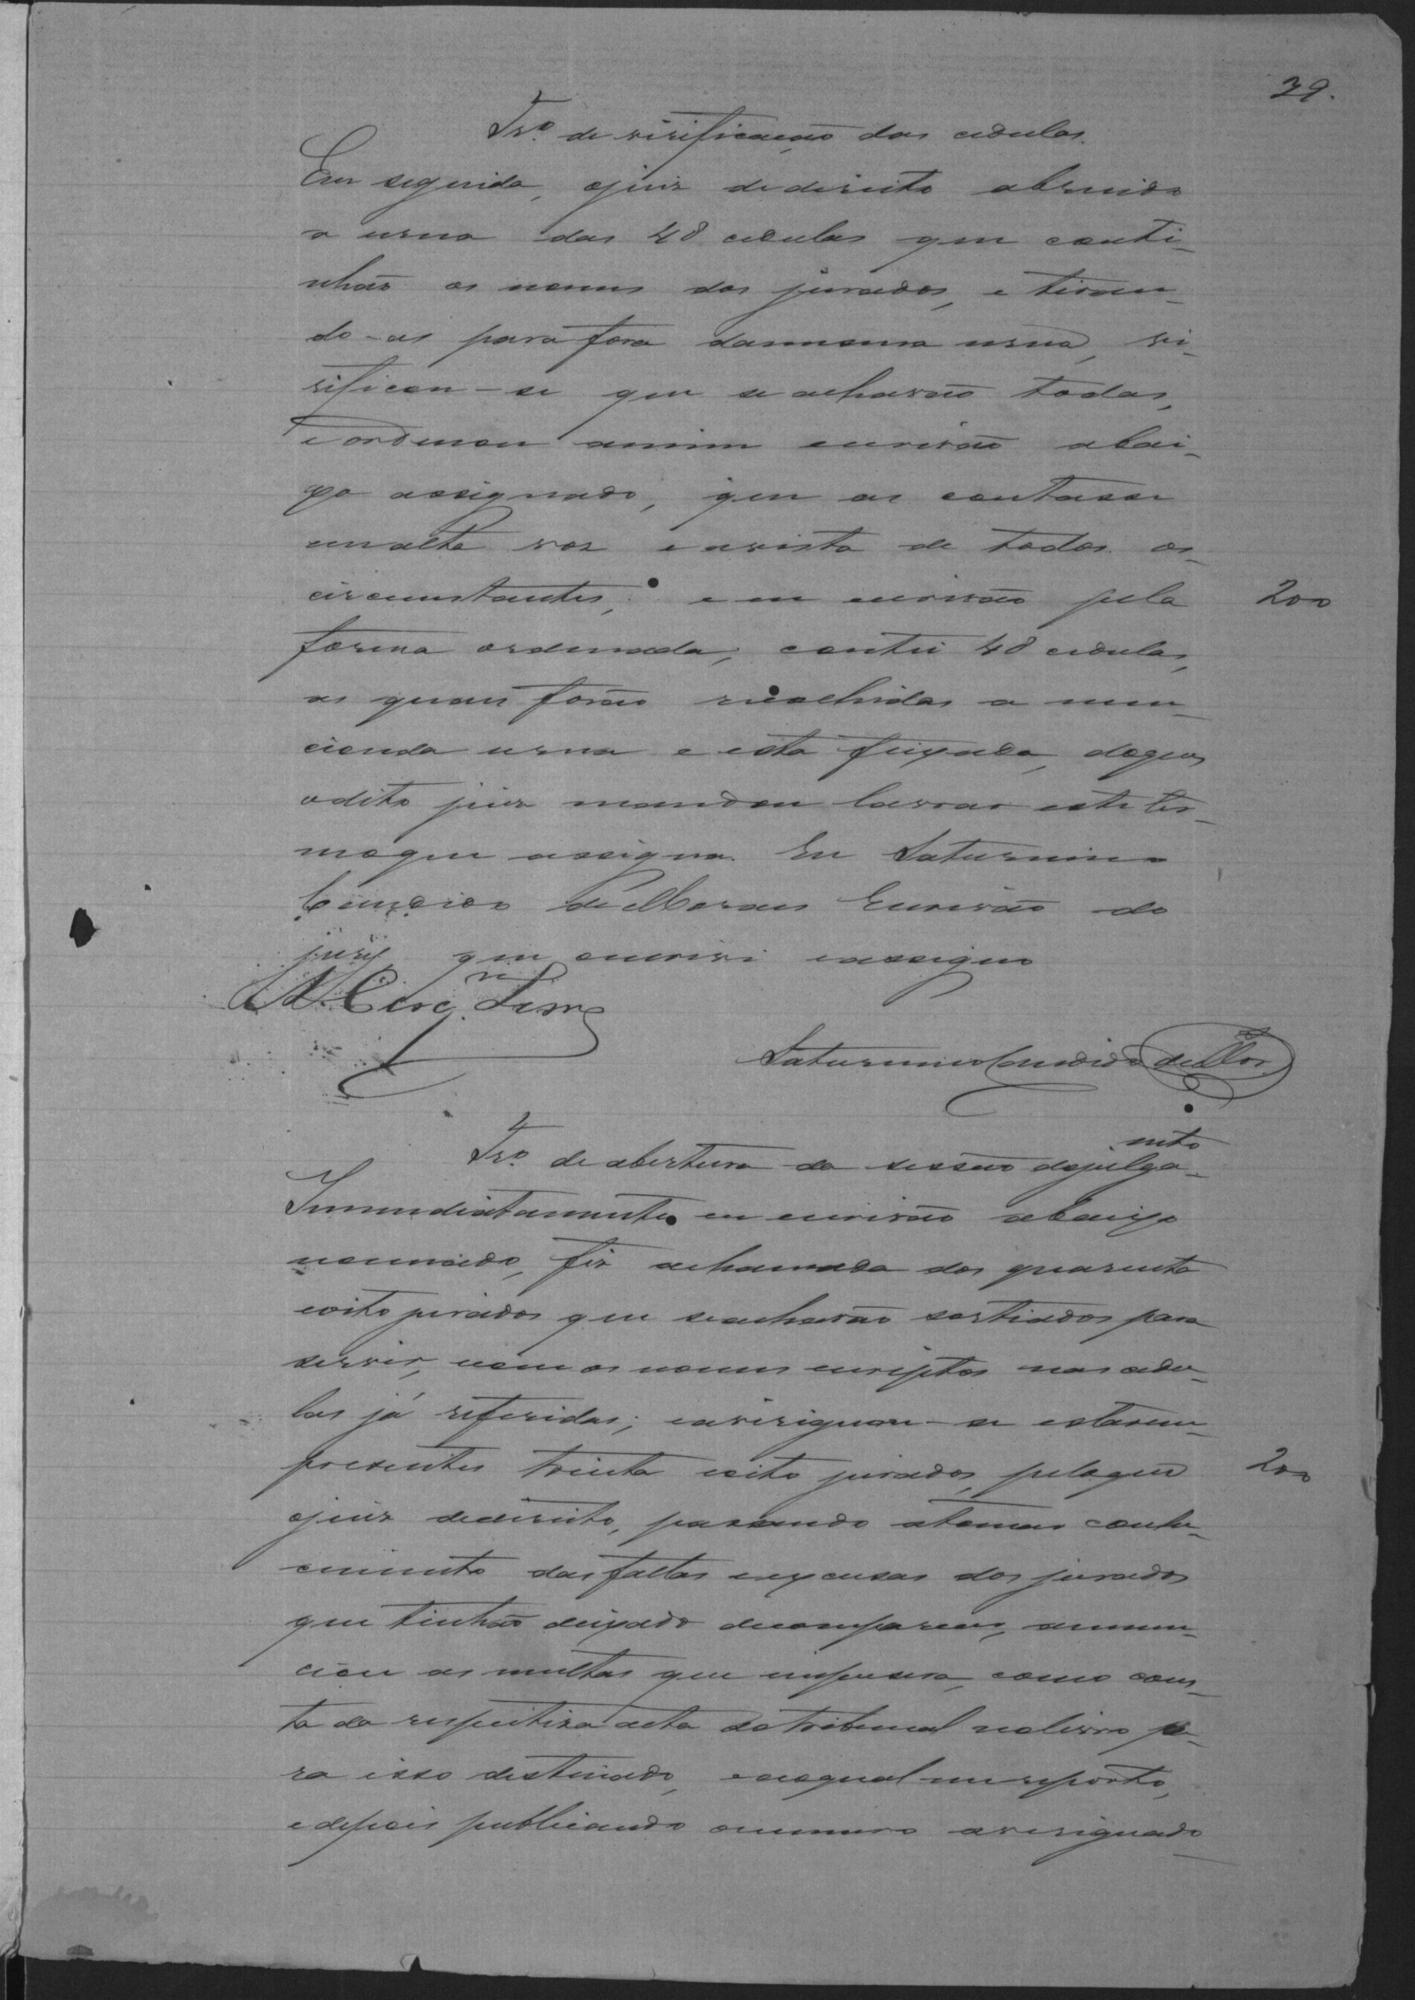 39.
Tr.º de virificação das cedulas.
Em seguida, ojuiz dedireito abrindo
a urna das 48 cedulas que conti-
nhão os nomes dos jurados, e tiran-
do-as para fora damesma urna, vi-
rificou-se que se acharão todas,
e ordenou amim escrivão abai-
xo assignado, que as contasse
emalta voz e avista de todos os
circumstantes, e eu escrivão pela
200
forma ordenada, contei 48 cedulas,
as quais forão recolhidas a men-
cionda urna e esta feixada, doque
odito juiz mandou lavrar este ter-
moque assigna. Eu Saturnino
Candido de Moraes Escrivão do
jury que escrivi eassigno
Saturnino Candido de Mor.
Tr.º de abertura da sessão dejulga-
mto
Immediatamente eu escrivão abaixo
nomiado, fiz achamada dos quarenta
eoito jurados que seacharão sortiados para
servir, ecom os nomes escriptos nas cedu-
las já referidas; eaviriguou-se estarem
presentes trinta eoito jurados, peloque
200
ojuiz dedireito, passando atomar conhe-
cimento das faltas eexcusas dos jurados
que tinhão deixado decomparecer, annun-
ciou as multas que impusera, como cons-
ta da respectiva acta do tribunal nolivro pa-
ra isso destinado, eaoqual mereporto,
edepois publicando onumero aviriguado